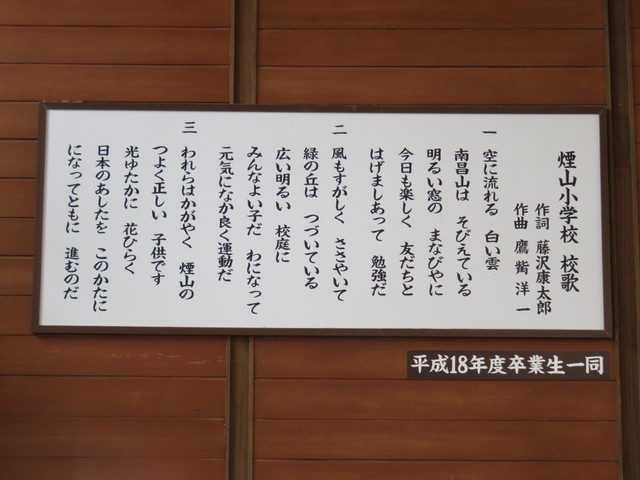 煙山小学校 校歌
作詞 藤沢康太郎
作曲 鷹觜洋一
一 空に流れる 白い雲
南昌山は そびえている
明るい窓の まなびやに
今日も楽しく 友だちと
はげましあって 勉強だ
二 風もすがしく ささやいて
緑の丘は つづいている
広い明るい 校庭に
みんなよい子だ わになって
元気になか良く運動だ
三 われらはかがやく 煙山の
つよく正しい 子供です
光ゆたかに 花ひらく
日本のあしたを このかたに
になってともに 進むのだ
平成18年度卒業生一同